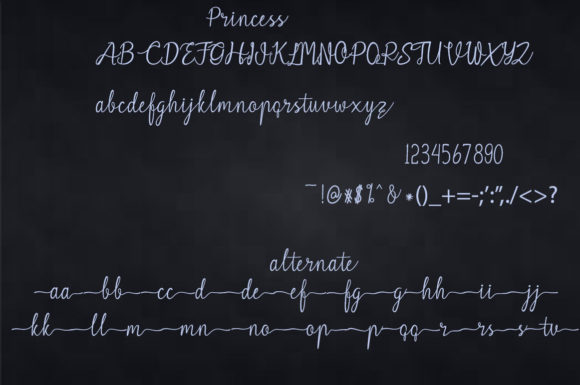 Princess
ABCDEFGHIJKLMNOPQRSTUVWXYZ
abcdefghijklmnopqrstuvwxyz
1234567890
~!@#$%^&*()_+=-;':",./<>?
alternate
aa bb cc d de ef fg g hh ii jj
kk ll m mn no op p qq r rs s tv